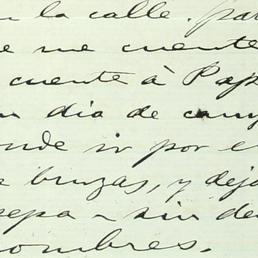 n la calle. par
e me cuente
cuente á Pap
n dia de cam
onde ir por el
e bruzas, y dejo
sepa - sin de
nombres.